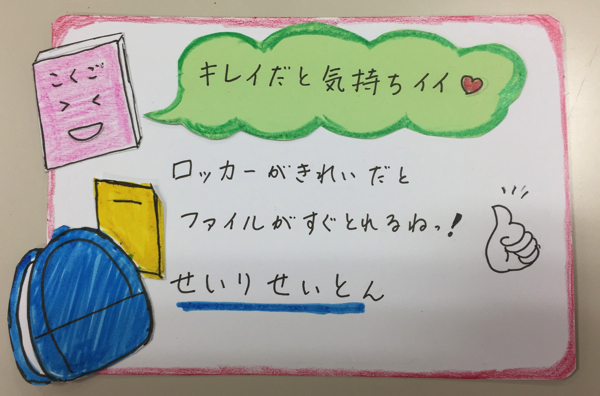 こくご
キレイだと気持ちイイ
ロッカーがきれいだと
ファイルがすぐとれるねっ!
せいりせいとん